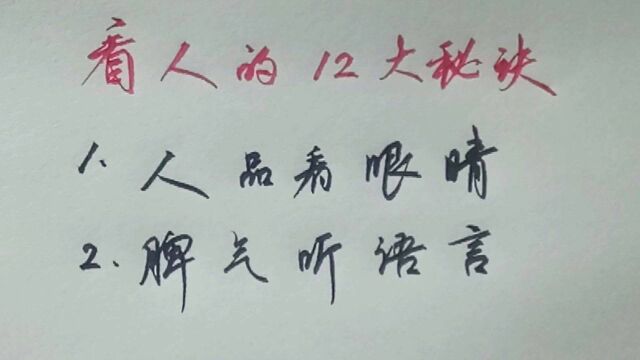 看人的12大秘诀
1、人品看眼睛
2、脾气听语言